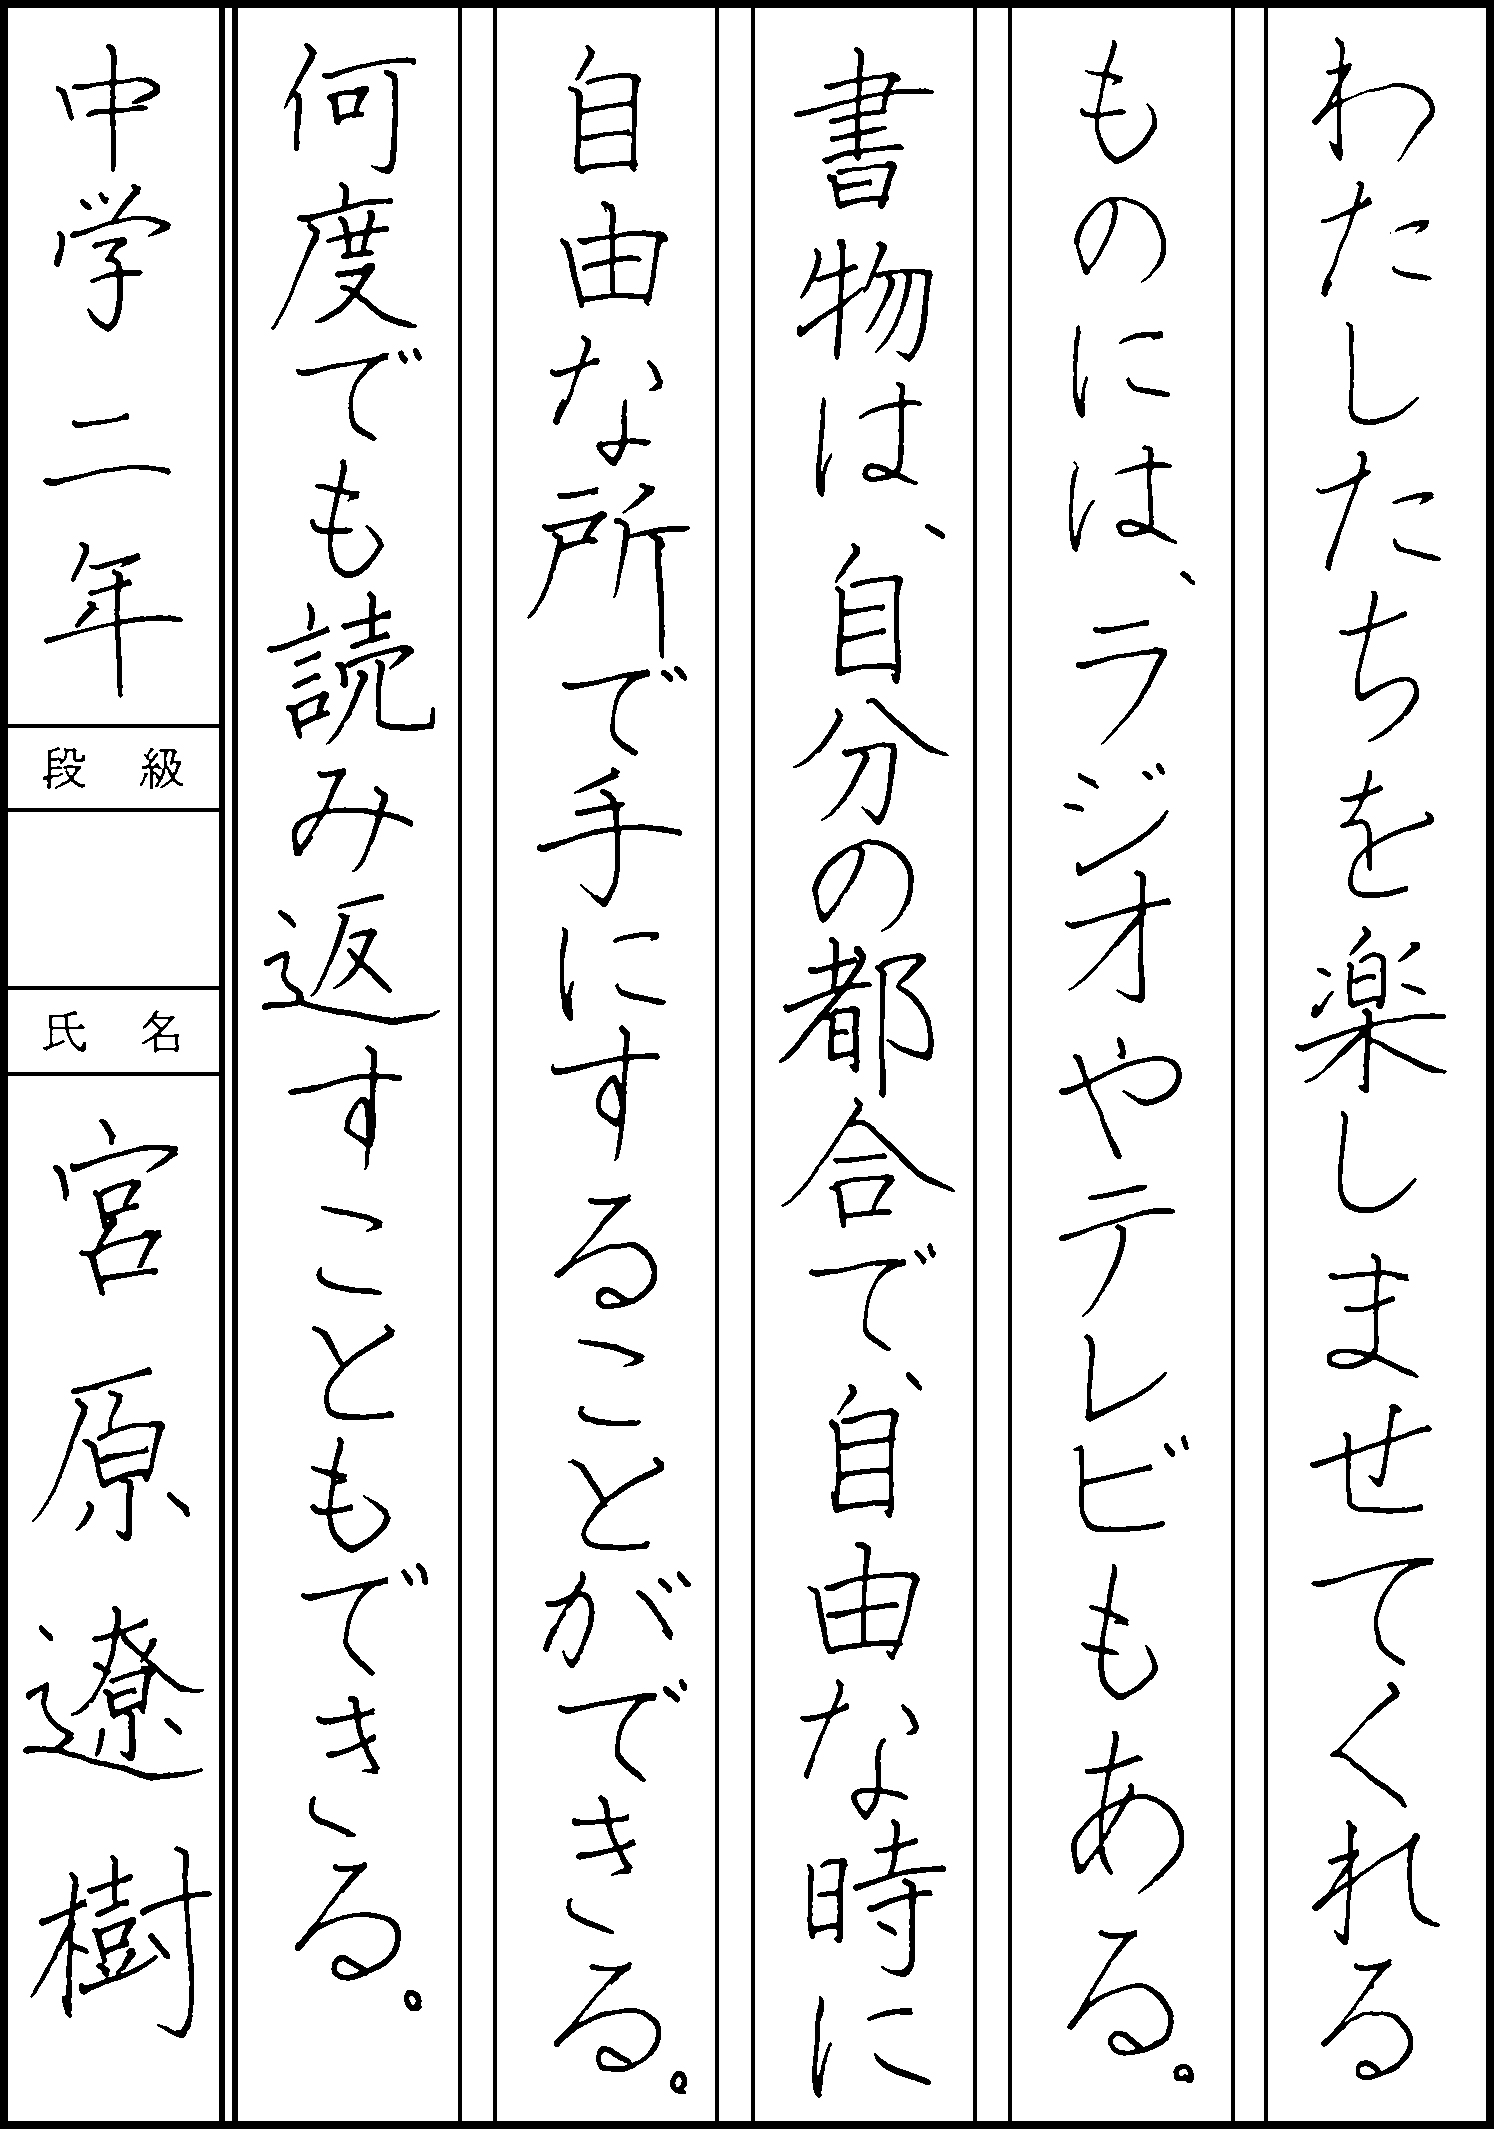 わたしたちを楽しませてくれる
ものには、ラジオやテレビもある。
書物は、自分の都合で、自由な時に
自由な所で手にすることができる。
何度でも読み返すこともできる。
中学二年
段級
氏名
宮原遼樹